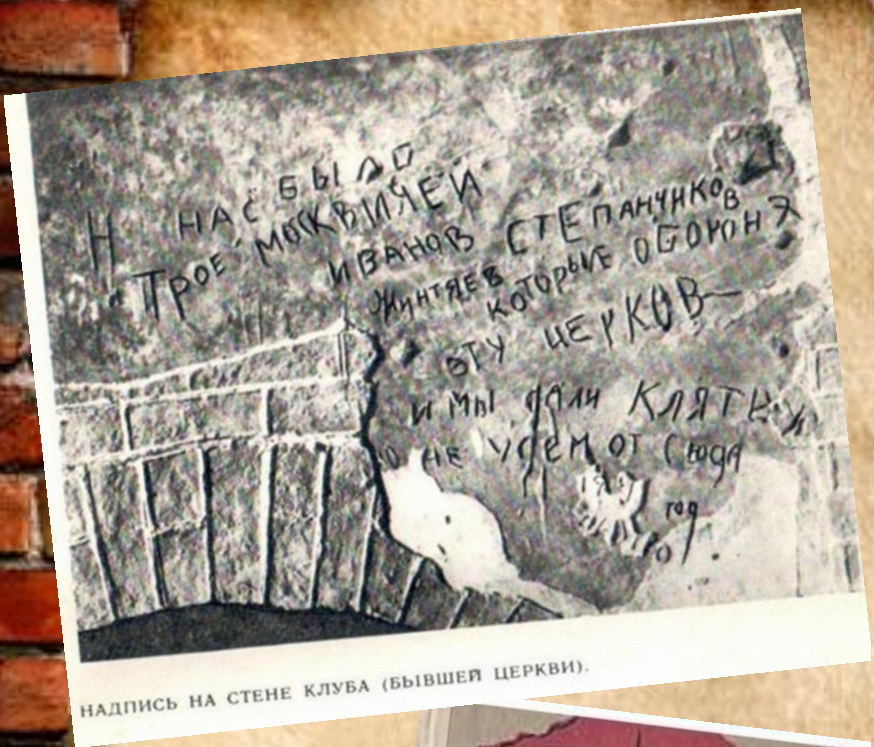 Н НАС БЫЛО
ТРОЕ МОСКВИЧЕЙ
ИВАНОВ СТЕПАНЧИКОВ
ЖУНТЯЕВ КОТОРЫЕ ОБОРОНЯ
ЭТУ ЦЕРКОВ
И МЫ ДАЛИ КЛЯТВУ
НЕ УЙДЕМ ОТ СЮДА
год
НАДПИСЬ НА СТЕНЕ КЛУБА (БЫВШЕЙ ЦЕРКВИ).